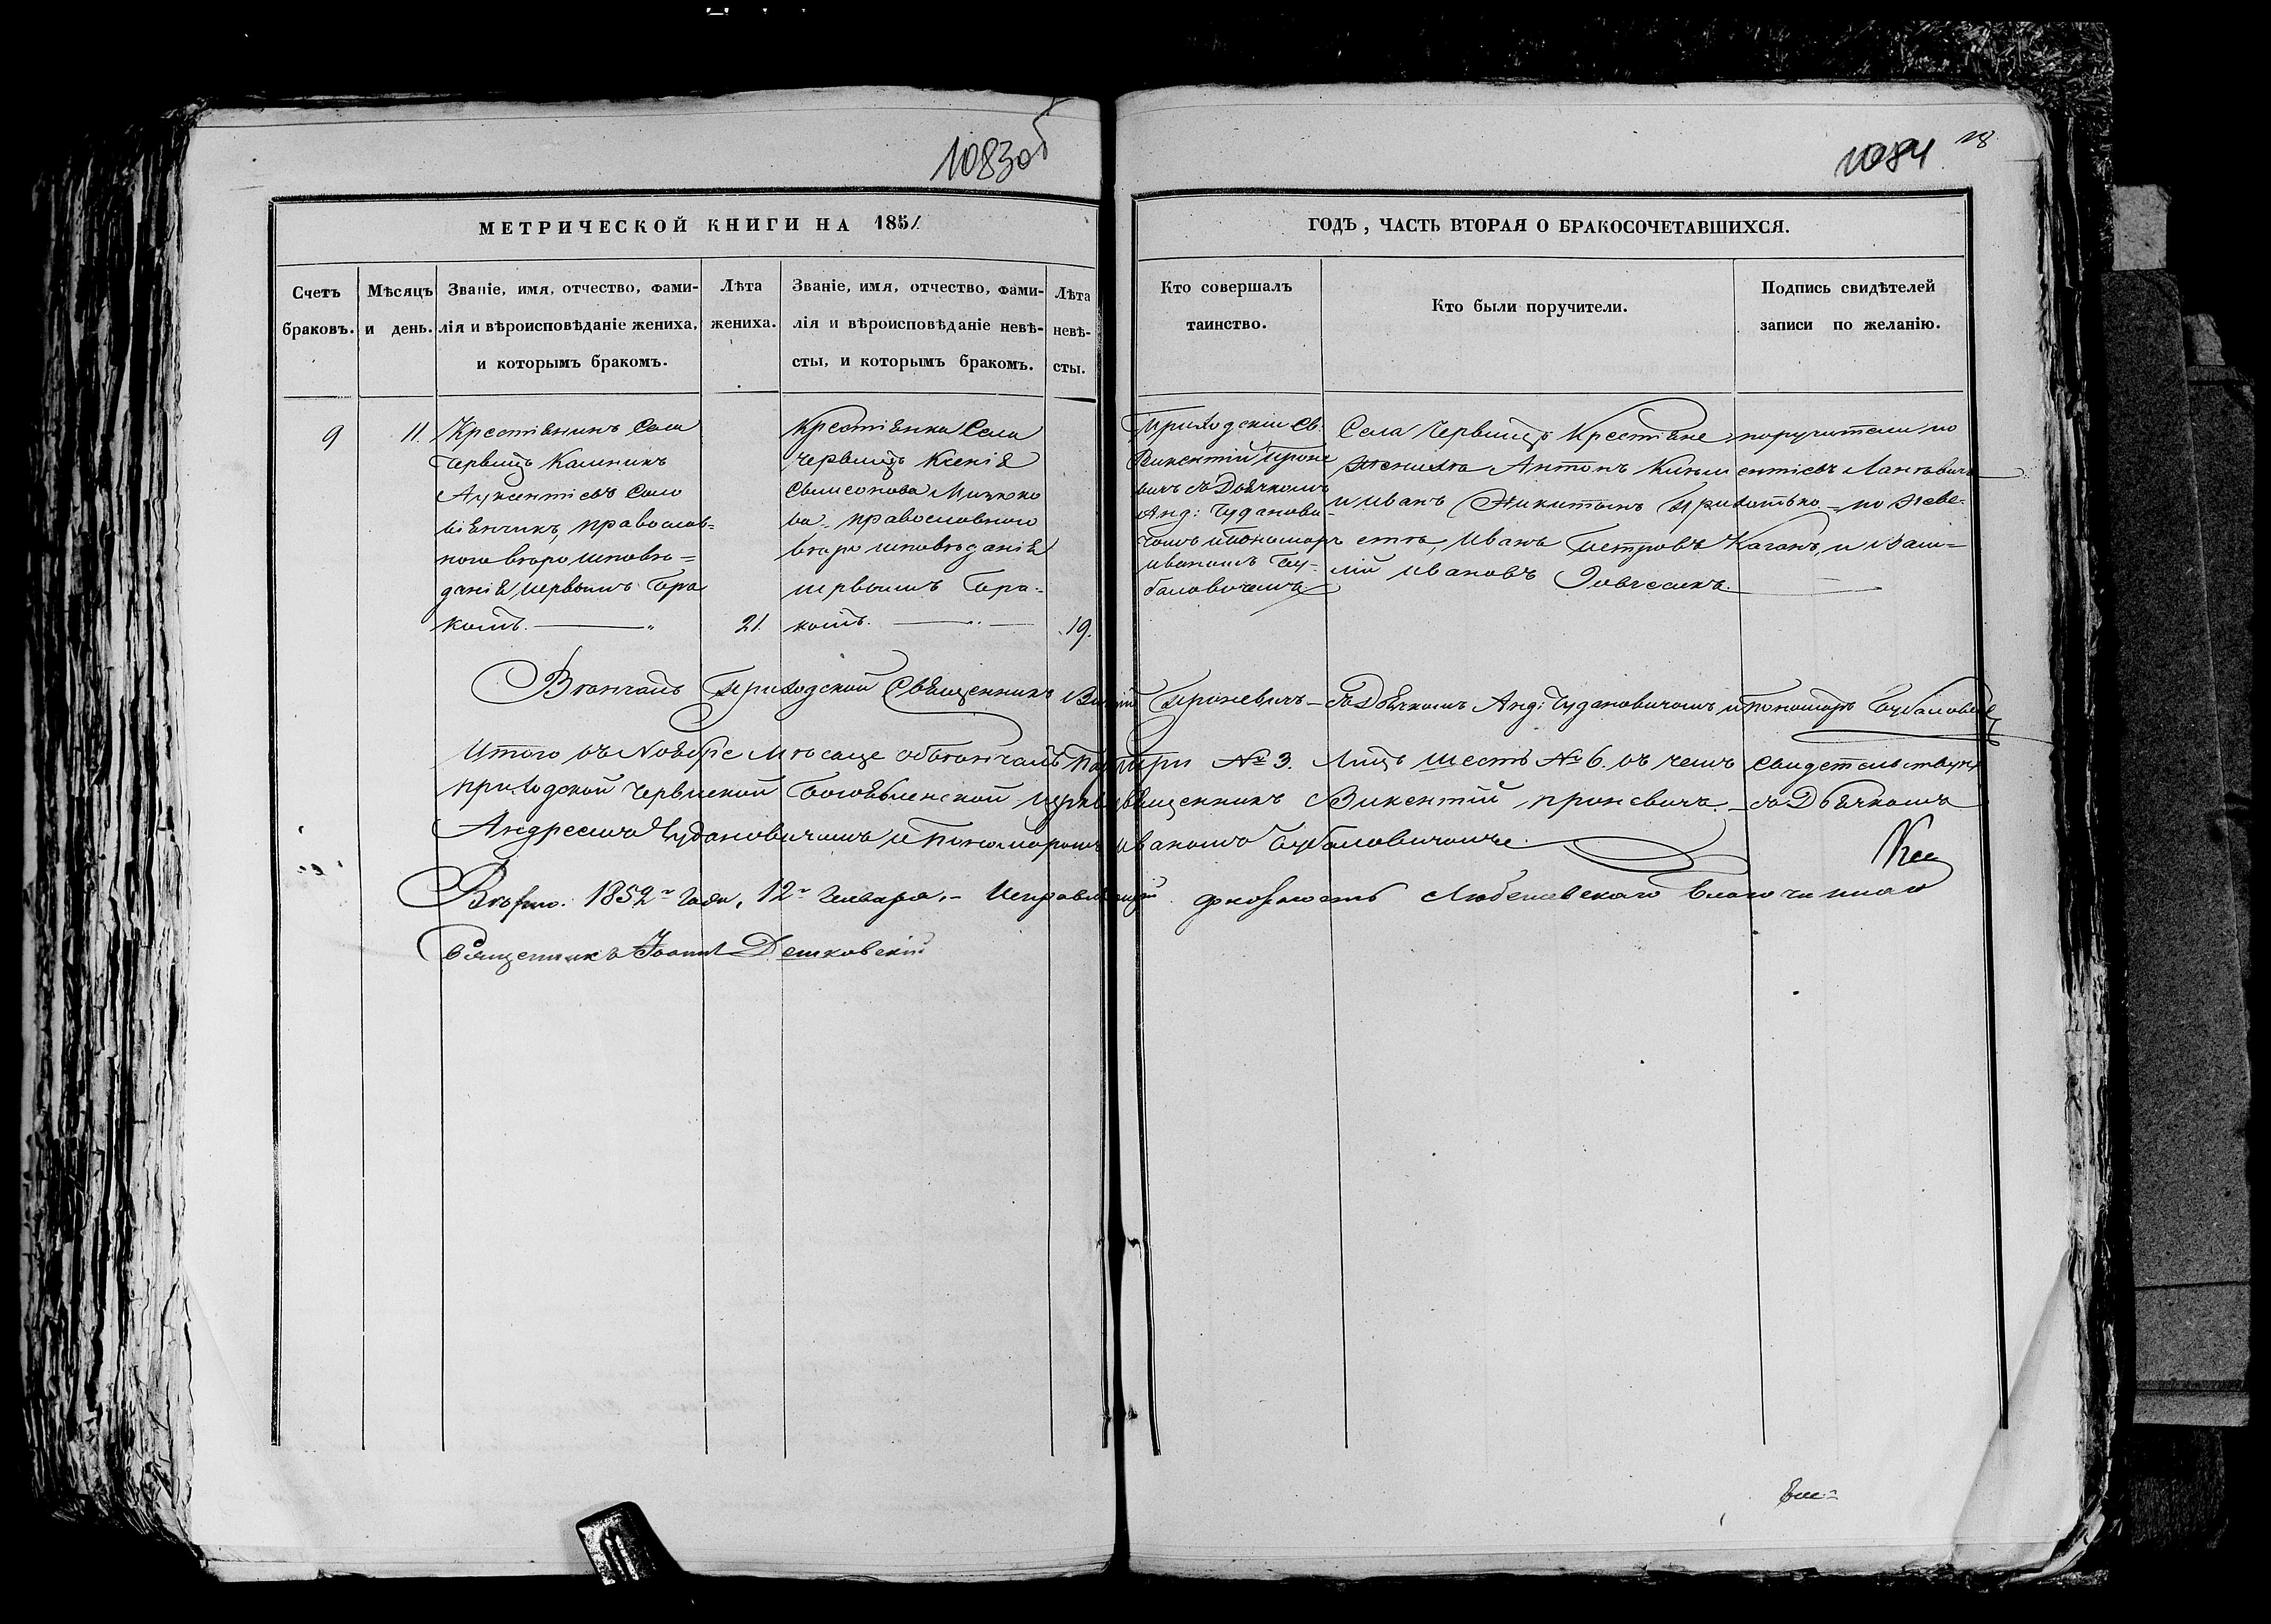 1083об
1084
18
МЕТРИЧЕСКОЙ КНИГИ НА 1851
ГОДЪ, ЧАСТЬ ВТОРАЯ О БРАКОСОЧЕТАВШИХСЯ.
Счетъ браковъ.
Мѣсяцъ и день.
Званіе, имя, отчество, фами-
лія и вѣроисповѣданіе жениха,
и которымъ бракомъ.
Лѣта
жениха.
Званіе, имя, отчество, фами-
лія и вѣроисповѣданіе невѣ-
сты, и которымъ бракомъ.
Лѣта
невѣ-
сты.
Кто совершалъ
таинство.
Кто были поручители.
Подпись свидѣтелей
записи по желанію.
9
11.
Крестянинъ Села
Червищъ Калиникъ
Ауксентіевъ Соло
вянчикъ, православ=
ного вѣроисповѣ=
данія, первымъ бра
комъ.
21.
Крестянка Села
Червищъ Ксенія
Симеонова
ва, православного
вѣроисповѣданія
первымъ бра=
комъ.
19.
Приходскій Св.
Викентій Проне
вичъ съ Дячкомъ
Анд: Чуданови=
чомъ и Пономаръ
Иваномъ Бу=
баловичемъ
Села Червищъ Крестяне поручители по
женихѣ Антонъ
и Иванъ Никитинъ по неве=
стѣ, Иванъ Петровъ Каганъ, и Васи=
лій Ивановъ
Вѣнчалъ Приходской Священникъ Викентій Проневичъ съ Дячкомъ Анд: Чудановичомъ и Пономаръ Бубалович
Итого въ Ноябре Мѣсяце обвѣнчанъ паръ три № 3. Лицъ шесть № 6. въ чемъ Свидетельствуютъ
приходской Червиской Богоявленской церкви священникъ Викентій Проневичъ съ Дячкомъ
Андреемъ Чудановичомъ и Пономаромъ Иваномъ Бубаловичомъ.
Вѣрно. 1852 года, 12 Генваря. Исправляющій должность Любешевскаго Благочиннаго
Священникъ Іоаннъ Дешковскій